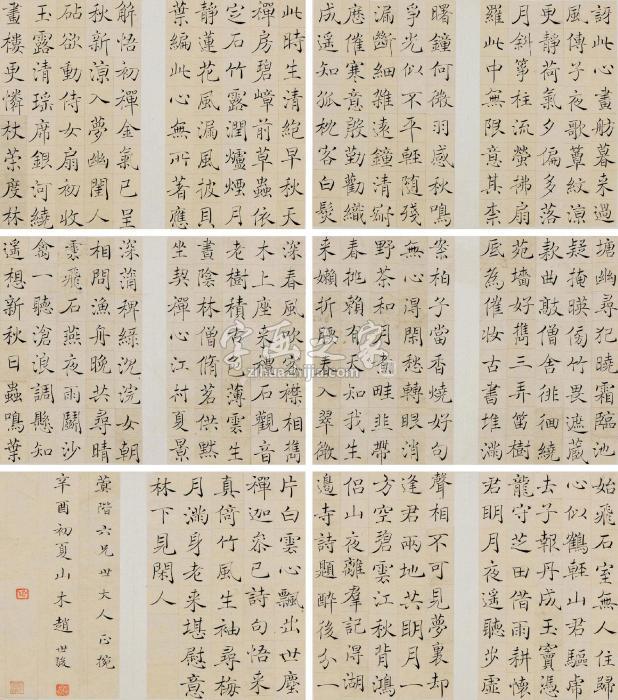 訝此心畫舫暮来過
風傳子夜歌簟紋凉
更静荷氣夕偏多落
月斜箏柱流螢拂扇
羅此中無限意其柰
曙鐘何微羽感秋鳴
争光似不平輕随殘
漏斷細雜遠鐘清砌
應催寒意殷勤勸織
成遥知孤枕客白髮
此時生清絕早秋天
禪房碧嶂前草蟲依
定石竹露潤爐煙月
静蓮花風漏風彼貝
葉編此心無所著應
解悟初禪金氣已呈
秋新凉入夢幽閨人
砧欲動侍女扇初收
玉露清瑶席銀河繞
畫樓更憐杖策度林
塘幽尋犯曉霜臨池
疑掩暎傍竹畏遮藏
款曲敲僧舍徘徊繞
苑墻好携三弄笛樹
底為催妝古書堆滿
案柏子當香燒好句
無心得閑愁轉眼消
野茶和月煮畦韭帶
春挑賴有人知我生
来嬾折腰春入翠微
深春風吹客襟相携
木上座来禮石觀音
老樹積香雨薄雲生
晝陰林僧脩茗供默
坐契禪心江村夏景
深蒲稗緑沉浣女朝
相問漁舟晚共尋晴
雲飛石燕夜雨鬭沙
禽一聽滄浪調懸知
遥想新秋日蟲鳴葉
始飛石室無人住歸
心似鶴輕山君驅虎
去子報丹成玉竇憑
龍守芝田借雨耕懷
君明月夜遥聽步虛
聲相不可見夢裏却
逢君兩地共明月一
方空碧雲江秋背鴻
侣山夜離羣記得湖
邊寺詩題醉後分一
片白雲心飄出世塵
禪迦參已詩句悟来
真倚竹風生袖尋梅
月滿身老来堪慰意
林下見閑人
蓂階六兄世大人正腕
辛酉初夏山木趙世駿
字画之家
zihuazhijia.com